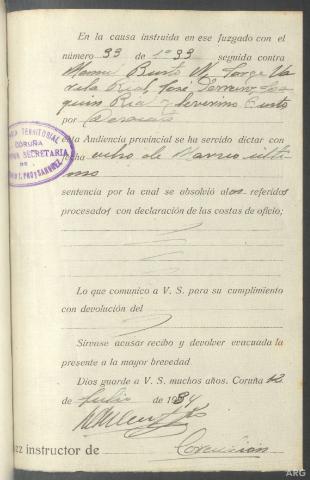 En la causa instruida en ese Juzgado con el
número 33 de 1933 seguida contra
Manuel Busto M, Jorge Va
rela Rial, José Ferreno, Joa
quin Rial y Severino Busto
por
esta Audiencia provincial se ha servido dictar con
fecha ocho de Marzo últi
mo
sentencia por la cual se absolvió alos referidos
procesados con declaración de las costas de oficio;
TERRITORIAL
CORUÑA
SECRETARIA
DE
Lo que comunico a V. S. para su cumplimiento
con devolución del
Sírvase acusar recibo y devolver evacuada la
presente a la mayor brevedad
Dios guarde a V. S. muchos años. Coruña 12
de Julio de 1934
ez instructor de Corcubión
ARG